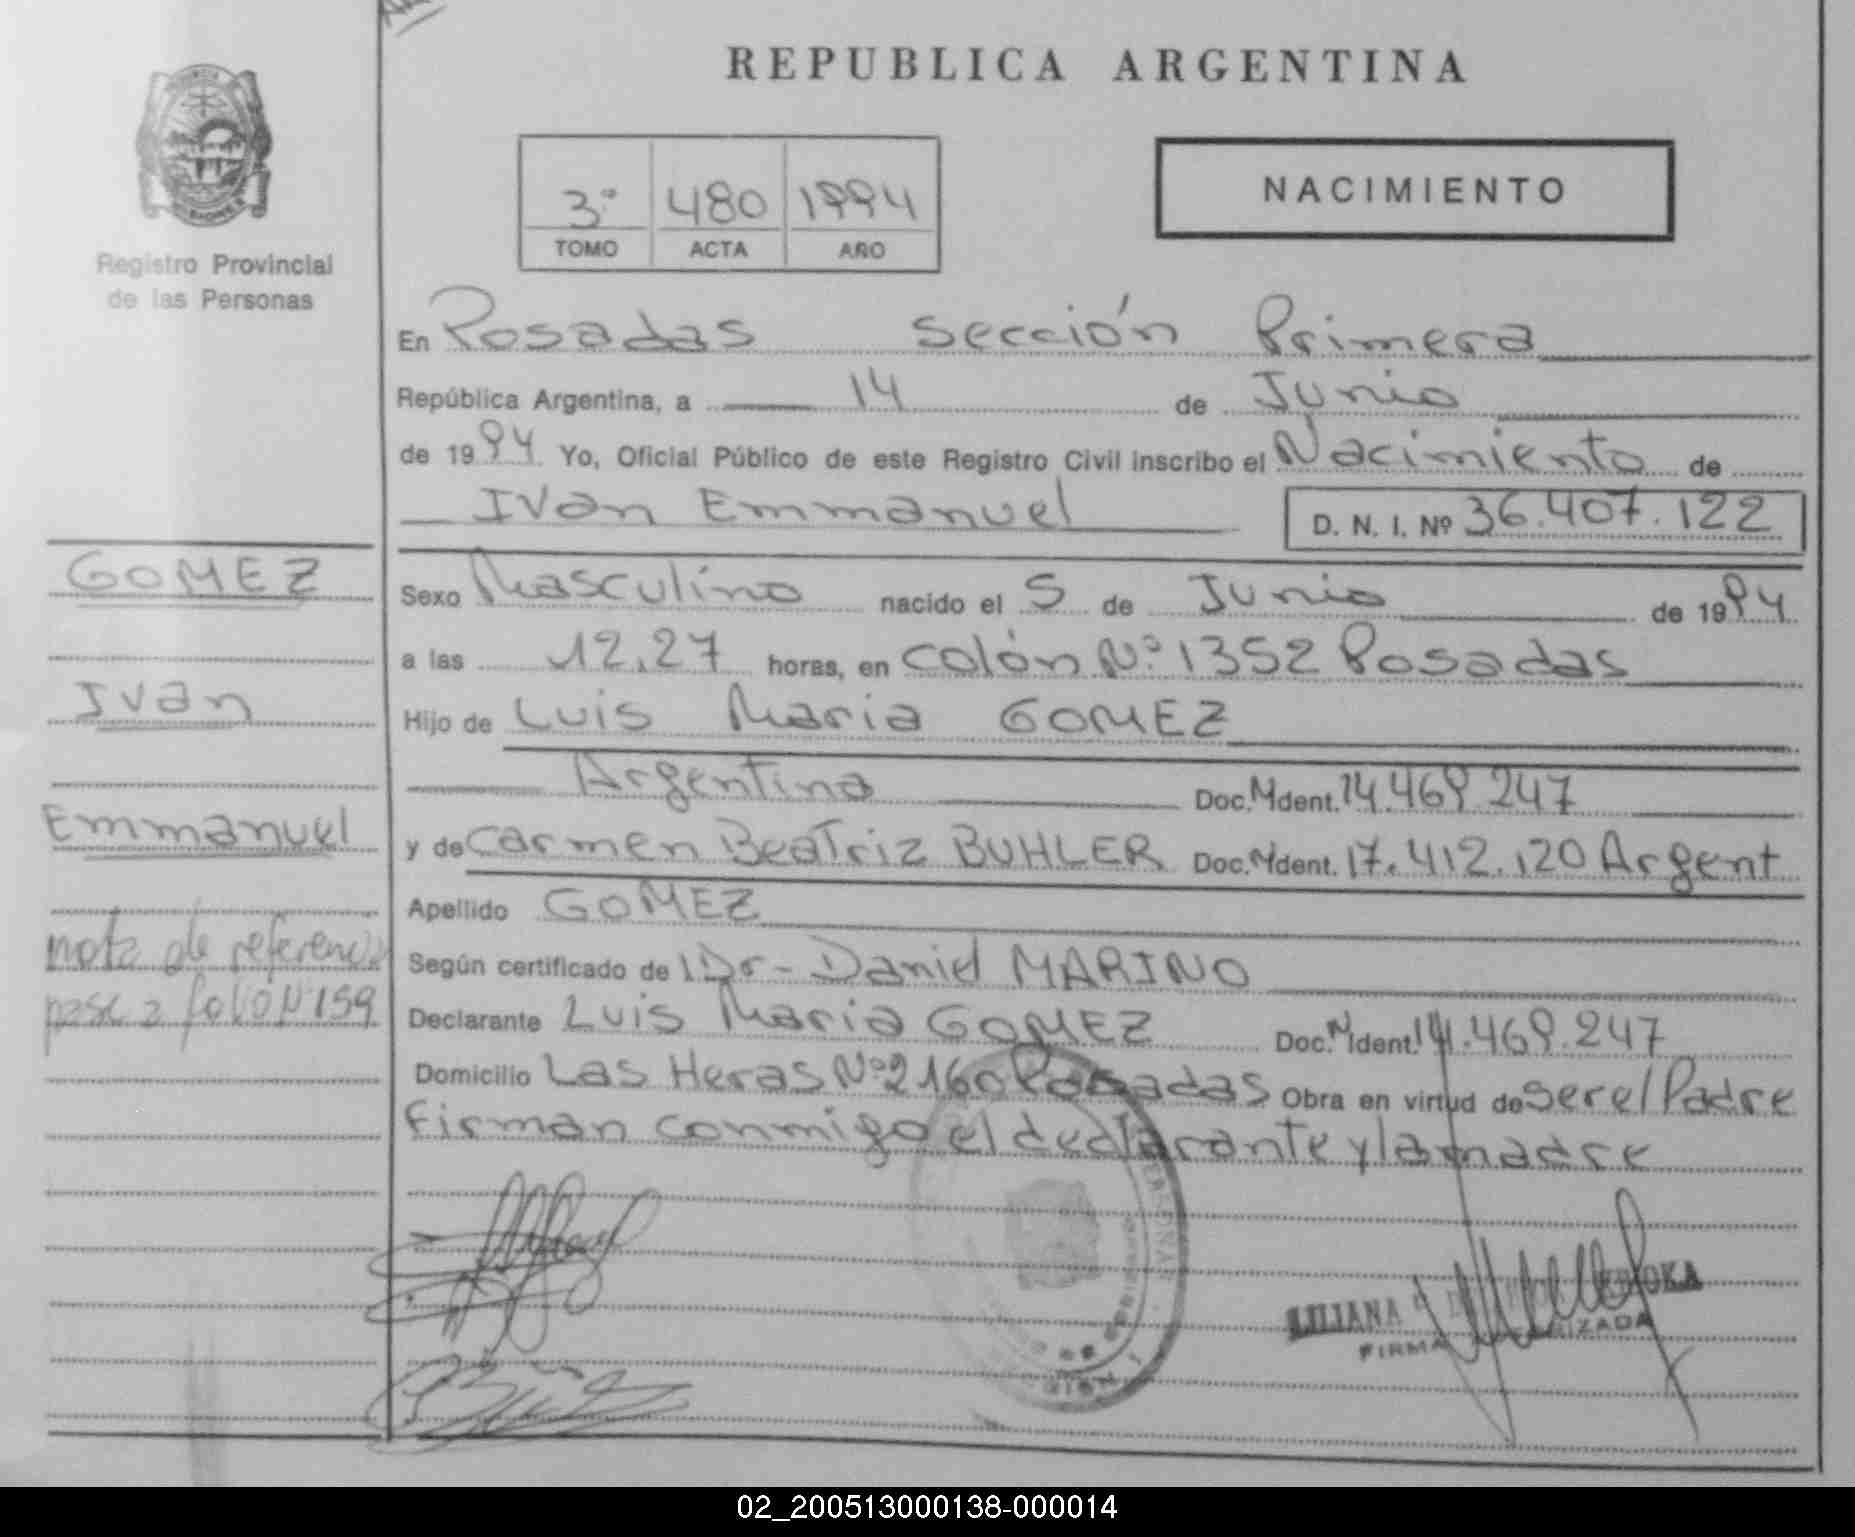 REPUBLICA ARGENTINA
3º 480 1994
TOMO ACTA AÑO
NACIMIENTO
Registro Provincial
de las Personas
En Posadas Sección Primera
República Argentina, a 14 de Junio
de 1994 Yo, Oficial Público de este Registro Civil inscribo el Nacimiento de
Ivan Emmanuel D. N. I. Nº 36.407.122
GOMEZ
Ivan
Emmanuel
nota de referencia
pase a folio Nº 159
Sexo Masculino nacido el 5 de Junio de 1994
a las 12,27 horas, en colón Nº 1352 Posadas
Hijo de Luis Maria GOMEZ
Argentina Doc. Nident. 14.469.247
y de Carmen Beatriz BUHLER Doc. Nident. 17.412.120 Argent
Apellido GOMEZ
Según certificado de Dr- Daniel MARINO
Declarante Luis Maria GOMEZ Doc. Nident. 14.469.247
Domicilio Las Heras Nº 2160 Posadas Obra en virtud de ser el Padre
Firman conmigo el declarante y la madre
LILIANA
FIRMA
02_200513000138-000014